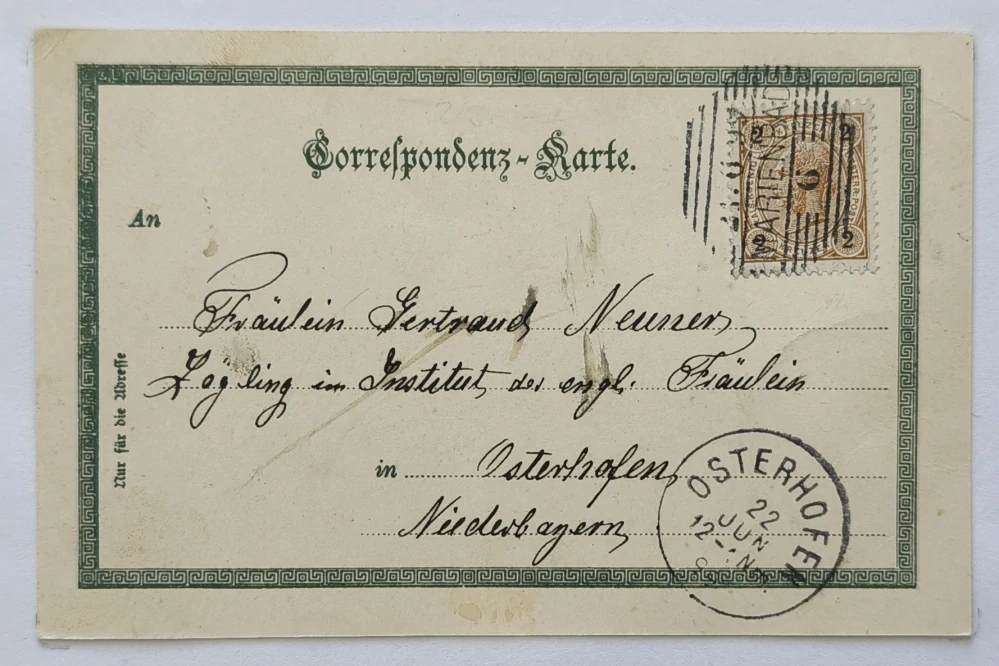 Correspondenz-Karte.
MARIENBAD
6
2 2
2 2
An
Fräulein Gertraud Neuner,
Zögling im Institut der engl. Fräulein
in Osterhofen,
Niederbayern,
Nur für die Adresse
OSTERHOFEN
22
JUN
12-